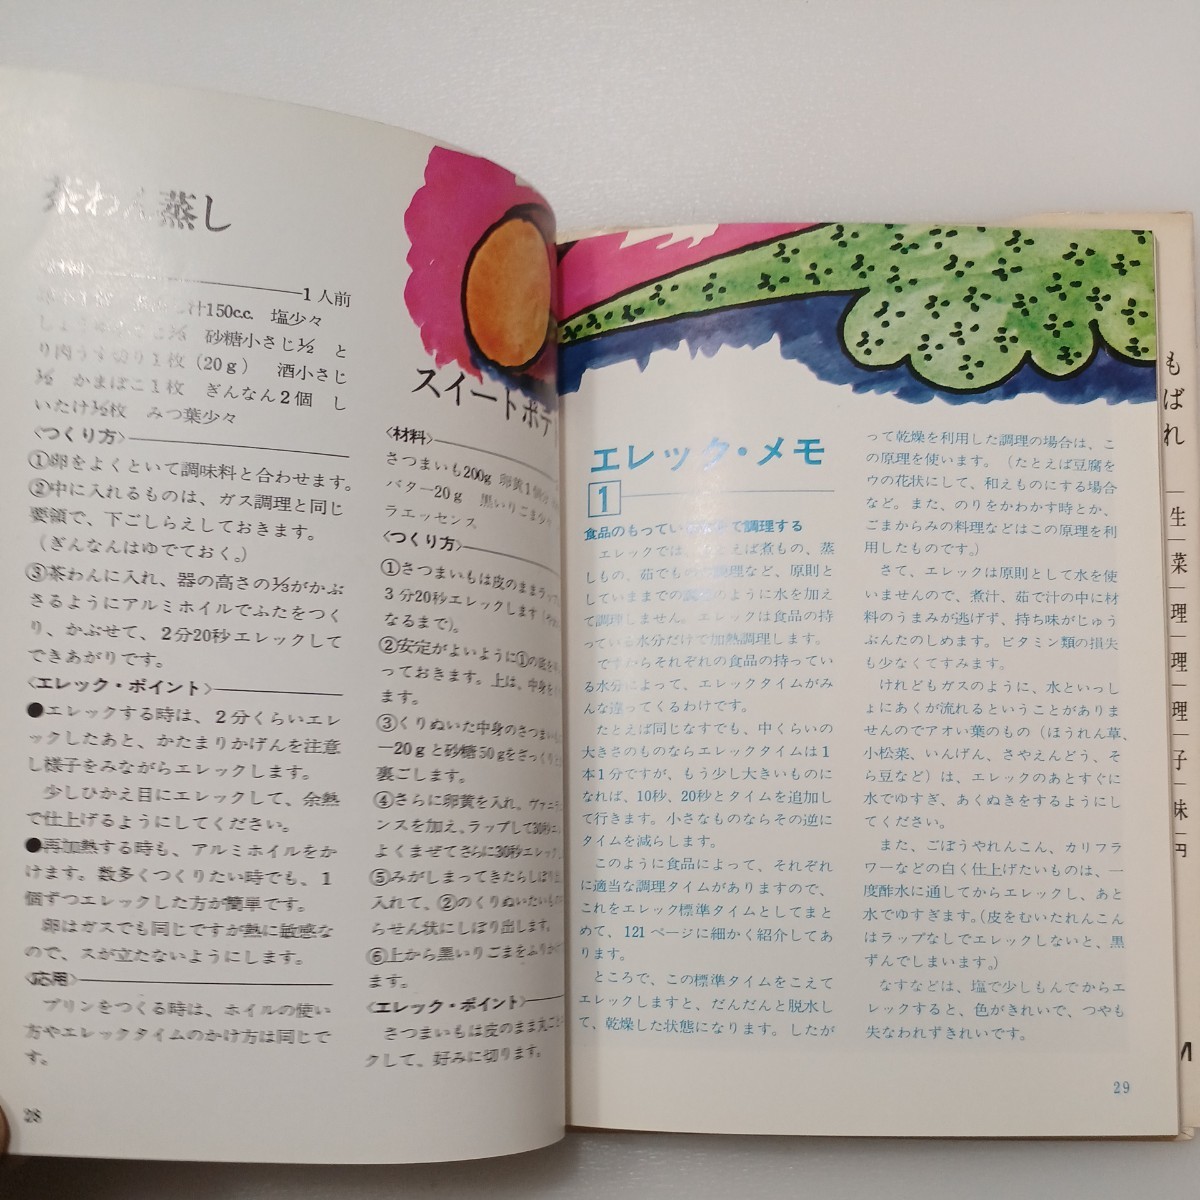 茶わん蒸し
1人前
汁150c.c. 塩少々
砂糖小さじ½ と
り肉うす切り1枚(20g) 酒小さじ
½ かまぼこ1枚 ぎんなん2個 し
いたけ½枚 みつ葉少々
〈つくり方〉
①卵をよくといて調味料と合わせます。
②中に入れるものは、ガス調理と同じ
要領で、下ごしらえしておきます。
(ぎんなんはゆでておく。)
③茶わんに入れ、器の高さの⅓がかぶ
さるようにアルミホイルでふたをつく
り、かぶせて、2分20秒エレックして
できあがりです。
〈エレック・ポイント〉
●エレックする時は、2分くらいエレ
ックしたあと、かたまりかげんを注意
し様子をみながらエレックします。
少しひかえ目にエレックして、余熱
で仕上げるようにしてください。
●再加熱する時も、アルミホイルをか
けます。数多くつくりたい時でも、1
個ずつエレックした方が簡単です。
卵はガスでも同じですが熱に敏感な
ので、スが立たないようにします。
〈応用〉
プリンをつくる時は、ホイルの使い
方やエレックタイムのかけ方は同じで
す。
28
スイートポテ
〈材料〉
さつまいも200g 卵黄1個分
バター20g 黒いりごま少々
ラエッセンス
〈つくり方〉
①さつまいもは皮のままラップ
3分20秒エレックします
なるまで)。
②安定がよいように①の底を
っておきます。上は、中身を
ます。
③くりぬいた中身のさつまいも
ー20gと砂糖50gをざっくりと
裏ごします。
④さらに卵黄を入れ、ヴァニラ
ンスを加え、ラップして30秒エ
よくまぜてさらに30秒エレック
⑤みがしまってきたらしぼり出
入れて、②のくりぬいたいもの
らせん状にしぼり出します。
⑥上から黒いりごまをふりかけ
ます。
〈エレック・ポイント〉
さつまいもは皮のまま丸ごと
クして、好みに切ります。
エレック・メモ
1
食品のもってい で調理する
エレックでは、たとえば煮もの、蒸
しもの、茹でもの 調理など、原則と
していままでの のように水を加え
て調理しません。エレックは食品の持
っている水分だけで加熱調理します。
ですからそれぞれの食品の持ってい
る水分によって、エレックタイムがみ
んな違ってくるわけです。
たとえば同じなすでも、中くらいの
大きさのものならエレックタイムは1
本1分ですが、もう少し大きいものに
なれば、10秒、20秒とタイムを追加し
て行きます。小さなものならその逆に
タイムを減らします。
このように食品によって、それぞれ
に適当な調理タイムがありますので、
これをエレック標準タイムとしてまと
めて、121ページに細かく紹介してあ
ります。
ところで、この標準タイムをこえて
エレックしますと、だんだんと脱水し
て、乾燥した状態になります。したが
って乾燥を利用した調理の場合は、こ
の原理を使います。(たとえば豆腐を
ウの花状にして、和えものにする場合
など。また、のりをかわかす時とか、
ごまからみの料理などはこの原理を利
用したものです。)
さて、エレックは原則として水を使
いませんので、煮汁、茹で汁の中に材
料のうまみが逃げず、持ち味がじゅう
ぶんたのしめます。ビタミン類の損失
も少なくてすみます。
けれどもガスのように、水といっし
ょにあくが流れるということがありま
せんのでアオい葉のもの(ほうれん草、
小松菜、いんげん、さやえんどう、そ
ら豆など)は、エレックのあとすぐに
水でゆすぎ、あくぬきをするようにし
てください。
また、ごぼうやれんこん、カリフラ
ワーなどの白く仕上げたいものは、一
度酢水に通してからエレックし、あと
水でゆすぎます。(皮をむいたれんこん
はラップなしでエレックしないと、黒
ずんでしまいます。)
なすなどは、塩で少しもんでからエ
レックすると、色がきれいで、つやも
失なわれずきれいです。
29
もばれ
生
菜
理
理
理
子
味
円